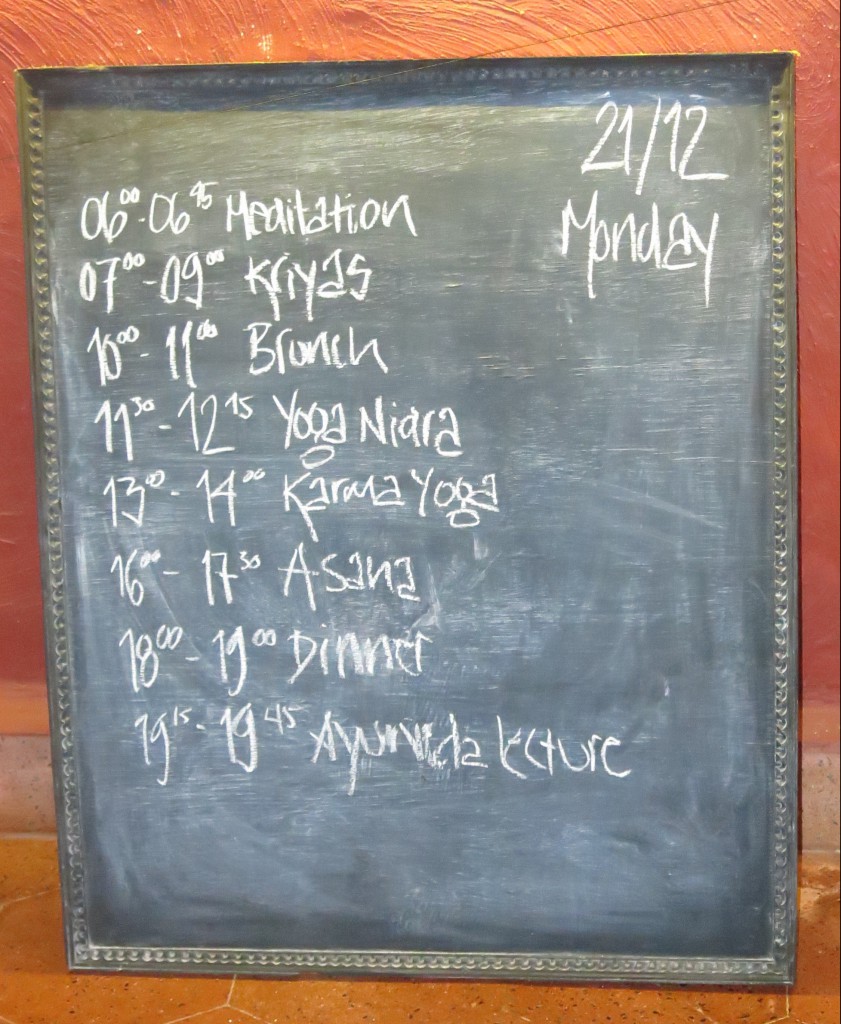 21/12
Monday
06⁰⁰-06⁴⁵ Meditation
07⁰⁰-09⁰⁰ Kriyas
10⁰⁰-11⁰⁰ Brunch
11³⁰-12¹⁵ Yoga Nidra
13⁰⁰-14⁰⁰ Karma Yoga
16⁰⁰-17³⁰ Asana
18⁰⁰-19⁰⁰ Dinner
19¹⁵-19⁴⁵ Ayurveda lecture